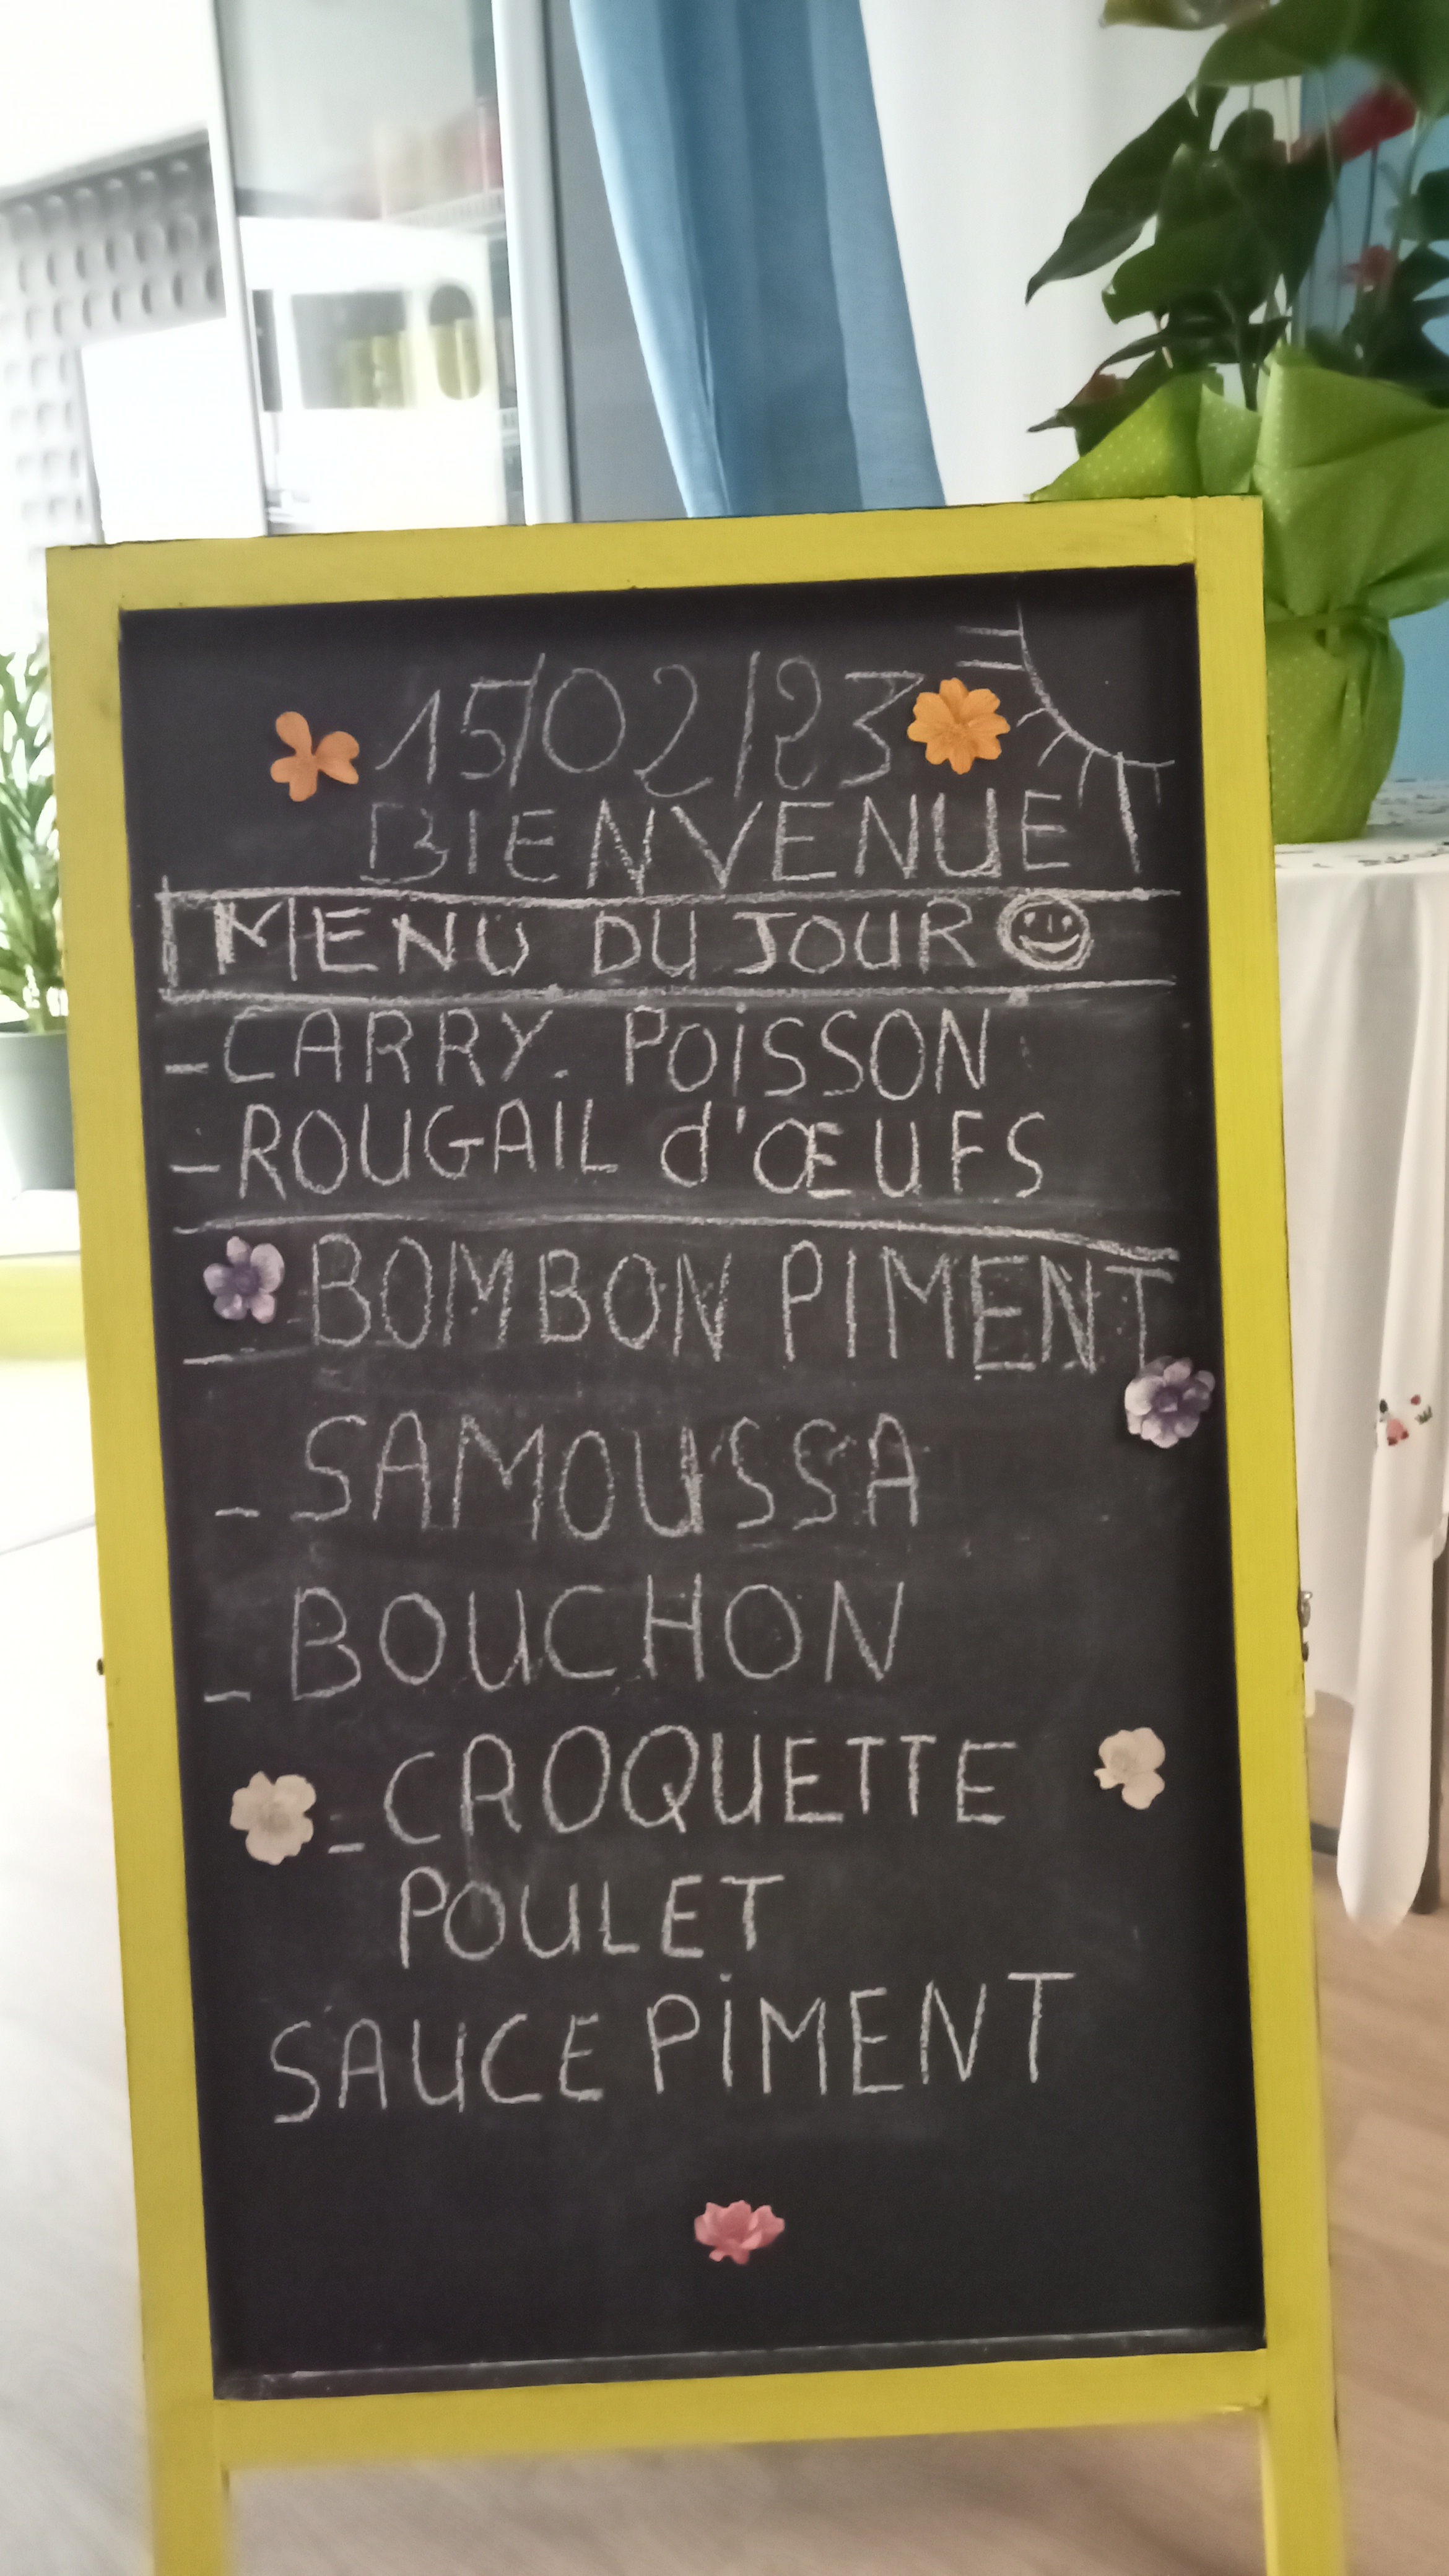 15/02/23
BIENVENUE
MENU DU JOUR
- CARRY. POISSON
- ROUGAIL d'ŒUFS
- BOMBON PIMENT
- SAMOUSSA
- BOUCHON
- CROQUETTE
POULET
SAUCE PIMENT